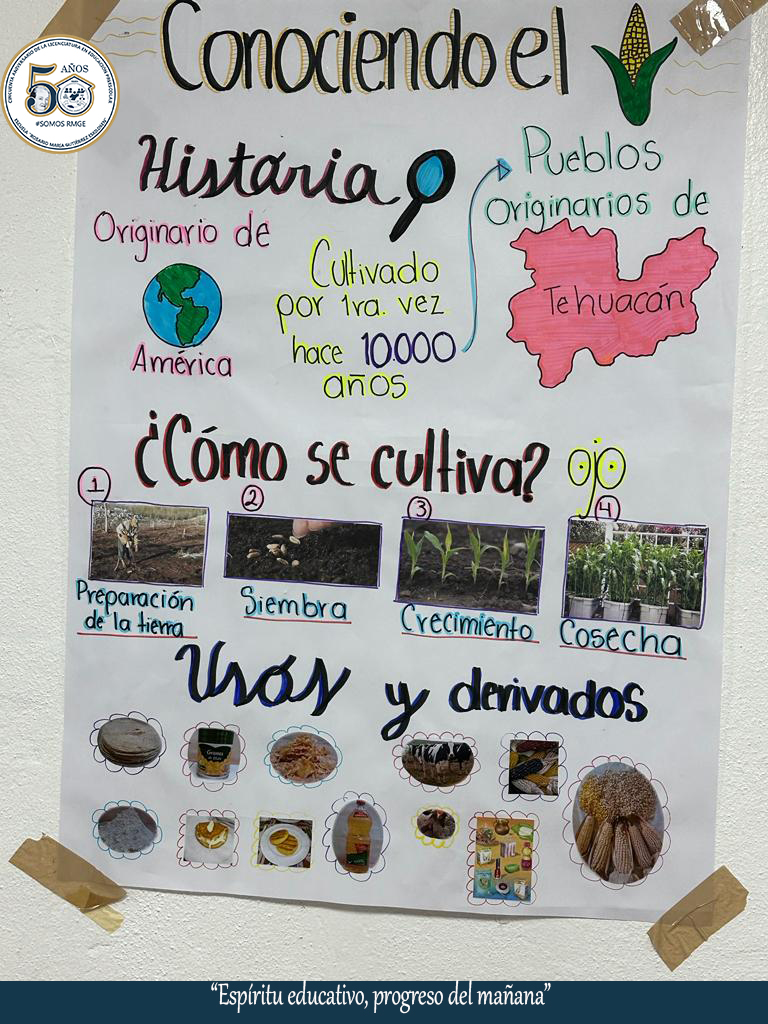 Conociendo el
CINCUENTA ANIVERSARIO DE LA LICENCIATURA EN EDUCACIÓN PREESCOLAR
50 AÑOS
#SOMOS RMGE
ESCUELA "ROSARIO MARÍA GUTIÉRREZ ESKILDSEN"
Histaria
Originario de
América
Cultivado
por 1ra. vez
hace 10.000
años
Pueblos
Originarios de
Tehuacán
¿Cómo se cultiva? ojo
1
Preparación
de la tierra
2
Siembra
3
Crecimiento
4
Cosecha
Usos y derivados
“Espíritu educativo, progreso del mañana”